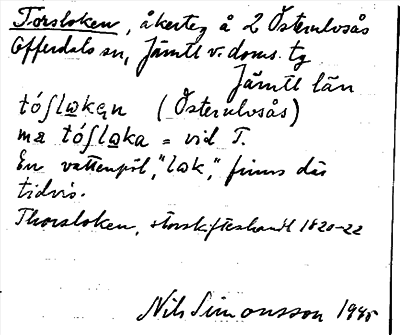 Torsloken, åkerteg å 2 Östernlosås
Offerdals sn, Jämtl v. doms. tg
Jämtl län
tóſlꙍkęn (Östernlosås)
mæ tóſlꙍka = vid T.
En vattenpöl, "lꙍk", finns där
tidvis.
Thorsloken, storskifteshandl 1820-22
Nils Simonsson 1945